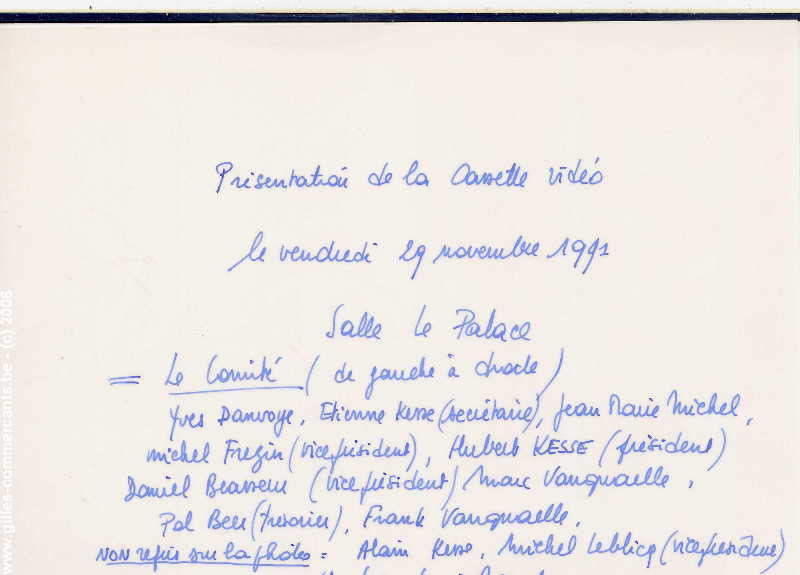 Présentation de la Cassette vidéo
le vendredi 29 novembre 1991
Salle Le Palace
= Le Comité (de gauche à droite)
Yves Danvoye, Etienne Kesse (secrétaire), Jean Marie Michel,
michel Fregin (vice président), Hubert KESSE (président)
Daniel (vice président) Marc Vanquaelle,
Pol Beer (trésorier), Frank Vanquaelle,
NON repris sur la photo = Alain Kesse, Michel Leblicq (vice président)
www.gilles-commercants.be - (c) 2006